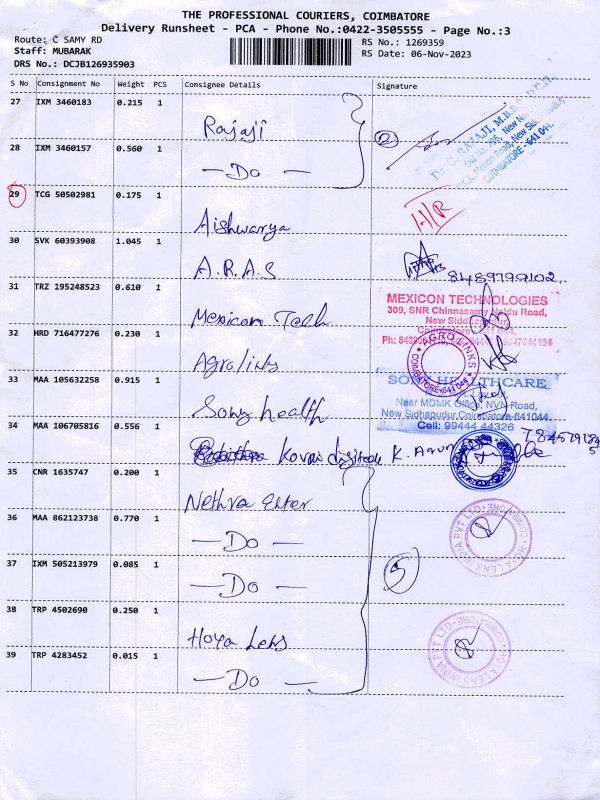 THE PROFESSIONAL COURIERS, COIMBATORE
Delivery Runsheet - PCA - Phone No.:0422-3505555 - Page No.:3
Route: C SAMY RD
Staff: MUBARAK
DRS No.: DCJB126935903
RS No.: 1269359
RS Date: 06-Nov-2023
S No Consignment No Weight PCS Consignee Details Signature
27 IXM 3460183 0.215 1
Rajaji
28 IXM 3460157 0.560 1
— Do —
2
COIMBATORE - 641 044
29 TCG 50502981 0.175 1
Aishwarya
H/R
30 SVK 60393908 1.045 1
A.R.A.S
8489799102
31 TRZ 195248523 0.610 1
Mexicon Tech
MEXICON TECHNOLOGIES
309, SNR Chinnasamy Naidu Road,
32 HRD 716477276 0.230 1
Agrolinks
AGRO LINKS
COIMBATORE-641 044
33 MAA 105632258 0.915 1
Sony health
HEALTHCARE
Near MDMK Office, NVN Road,
New Sidhapudur, Coimbatore-641044.
Cell: 99444 44326
34 MAA 106705816 0.556 1
Kovai K. Arun
35 CNR 1635747 0.200 1
Nethra Enter
36 MAA 862123738 0.770 1
— Do —
HOYA LENS INDIA PVT LTD
COIMBATORE
37 IXM 505213979 0.085 1
— Do —
5
38 TRP 4502690 0.250 1
Hoya Lens
HOYA LENS INDIA PVT LTD
COIMBATORE
39 TRP 4283452 0.015 1
— Do —